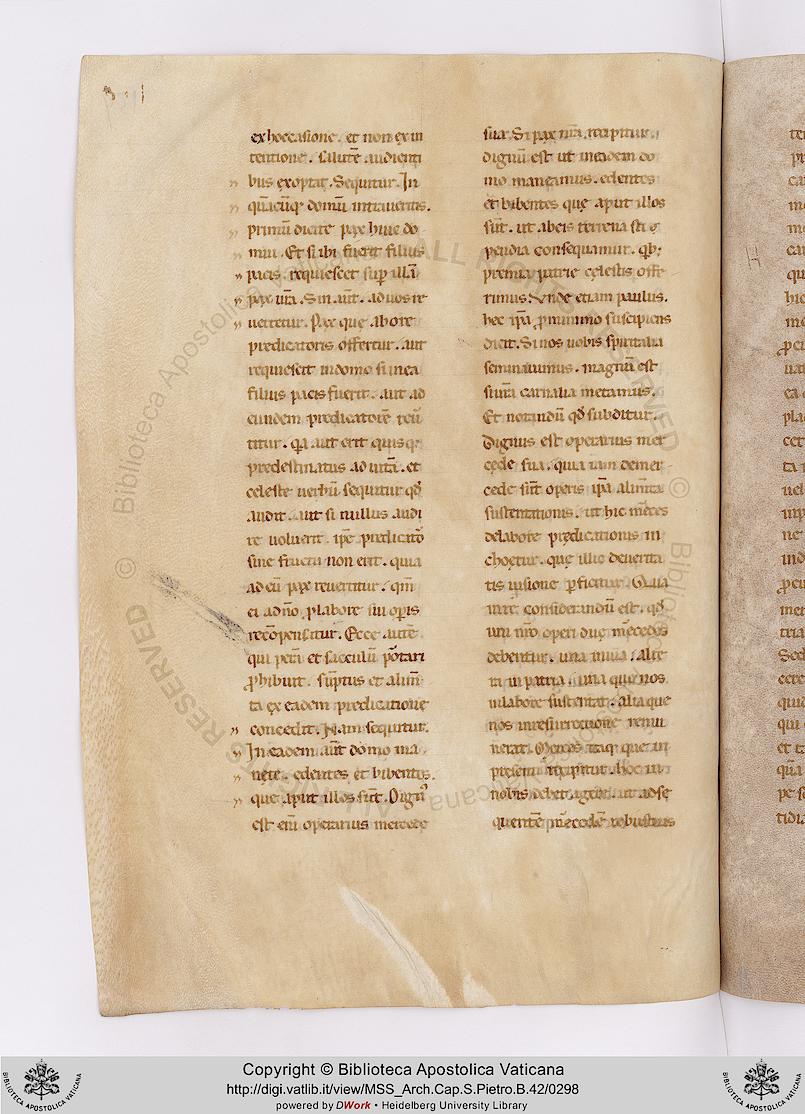 ex hoccasione. et non ex in
tentione. salutē audienti
bus exoptat. Sequitur. In
quācūq; domū intraueritis.
primū dicite pax huic do
mui. Et si ibi fuerit filius
pacis. requiescet sup illā
pax urā. Sin aūt. ad uos re
uertetur. Pax que ab ore
predicatoris offertur. aut
requiescit in domo si in ea
filius pacis fuerit. aut ad
eundem predicatorē reū
titur. qa aut erit quisq;
predestinatus ad uitā. et
celeste uerbū sequitur qđ
audit. aut si nullus audi
re uoluerit. ipe predicatō
sine fructu non erit. quia
ad eū pax reuertitur. qm̄
ei a dnō p labore sui opis
recōpensatur. Ecce autē
qui perā et sacculū portari
phibuit. sūptus et alim̄
ta ex eadem predicatione
concedit. Nam sequitur.
In eadem aūt domo ma
nete. edentes et bibentes.
que aput illos sūt. Dign9
est eni operarius mercede
sua. Si pax nrā recipitur.
dignū est ut in eadem do
mo maneamus. edentes
et bibentes que aput illos
sūt. ut ab eis terrena sti
pendia consequamur. qb;
premia patrie celestis offe
rimus. Vnde etiam paulus.
hec ipā p minimo suscipiens
dicit. Si nos uobis spiritalia
seminauimus. magnū est
si urā carnalia metamus.
Et notandū qđ subditur.
Dignus est operarius mer
cede sua. quia iam de mer
cede sūt operis ipā alimta
sustentationis. ut hic m̄ces
de labore predicationis in
choetur. que illic de uerita
tis uisione pficitur. Qua
in re considerandū est. qđ
uni nrō operi due m̄cedes
debentur. una in uia. alte
ra in patria. una que nos
in labore sustentat. alia que
nos in resurrectione remu
nerat. Merces itaq; que in
presenti recipitur. hoc in
nobis debet agere. ut ad se
quentē m̄cedē robustius
Copyright © Biblioteca Apostolica Vaticana
http://digi.vatlib.it/view/MSS_Arch.Cap.S.Pietro.B.42/0298
powered by DWork • Heidelberg University Library